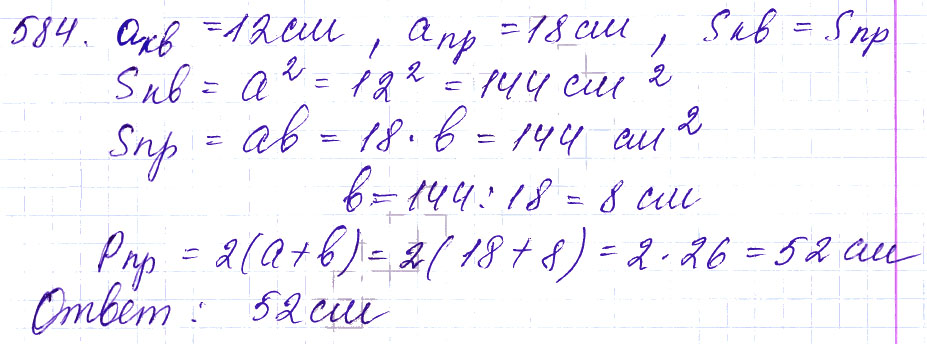 584. aкв = 12 см, aпр = 18 см, Sкв = Sпр
Sкв = a² = 12² = 144 см²
Sпр = ab = 18 · b = 144 см²
b = 144 : 18 = 8 см
Pпр = 2(a+b) = 2(18+8) = 2 · 26 = 52 см
Ответ: 52 см